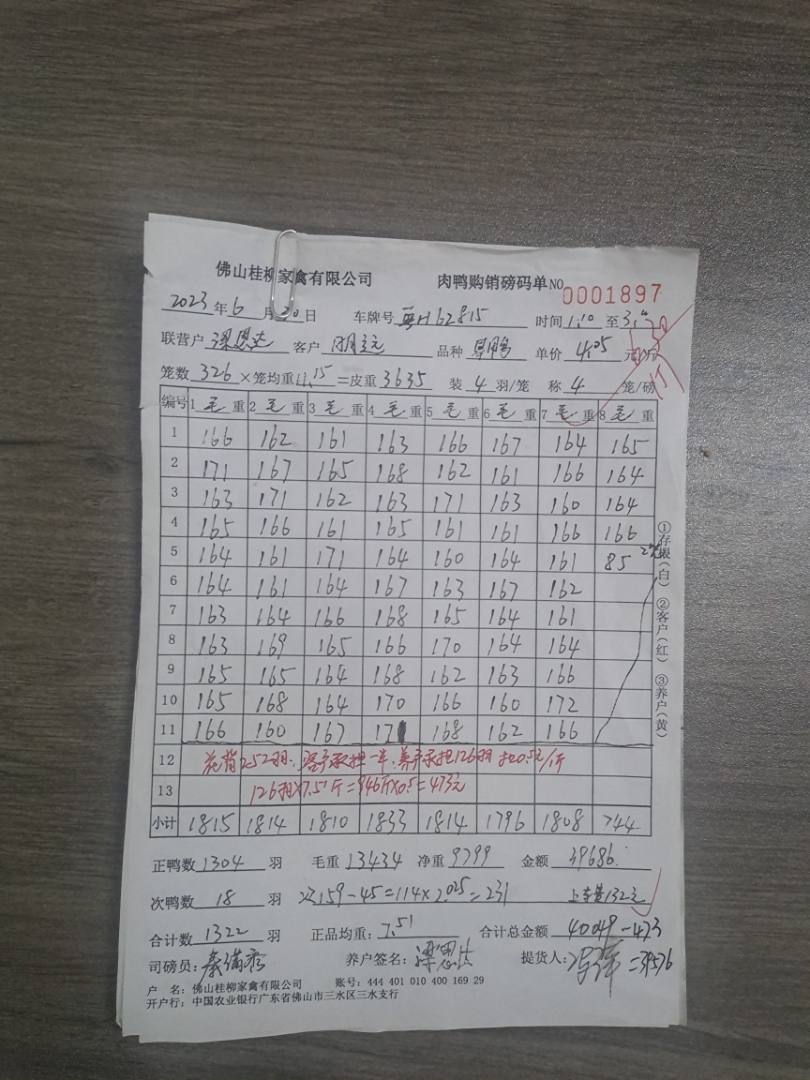 佛山桂柳家禽有限公司 肉鸭购销磅码单 NO 0001897
2023 年 6 月 20 日 车牌号 粤H62815 时间 1:10 至
联营户 梁思达 客户 品种 单价 4.05 元
笼数 326 × 笼均重 11.15 = 皮重 3635 装 4 羽/笼 称 4 笼/磅
编号 1 毛 重 2 毛 重 3 毛 重 4 毛 重 5 毛 重 6 毛 重 7 毛 重 8 毛 重
1 166 162 161 163 166 167 164 165
2 171 167 165 168 162 161 166 164
3 163 171 162 163 171 163 160 164
4 165 166 161 165 161 161 166 166
5 164 161 171 164 160 164 161 85
6 164 161 164 167 163 167 162
7 163 164 166 168 165 164 161
8 163 169 165 166 170 164 164
9 165 165 164 168 162 163 166
10 165 168 164 170 166 160 172
11 166 160 167 17 168 162 166
12 花背252羽,客户承担一半,养户承担126羽 扣0.5元/斤
13 126羽×7.51斤=946斤×0.5=473元
小计 1815 1814 1810 1833 1814 1796 1808 744
①存根(白) ②客户(红) ③养户(黄)
正鸭数 1304 羽 毛重 13434 净重 9799 金额 39686.
次鸭数 18 羽 次159-45=114×2.025=231 上车费132元
合计数 1322 羽 正品均重: 7.51 合计总金额 40049-473
司磅员: 养户签名: 梁思达 提货人: =39576
户 名: 佛山桂柳家禽有限公司 账号: 444 401 010 400 169 29
开户行: 中国农业银行广东省佛山市三水区三水支行